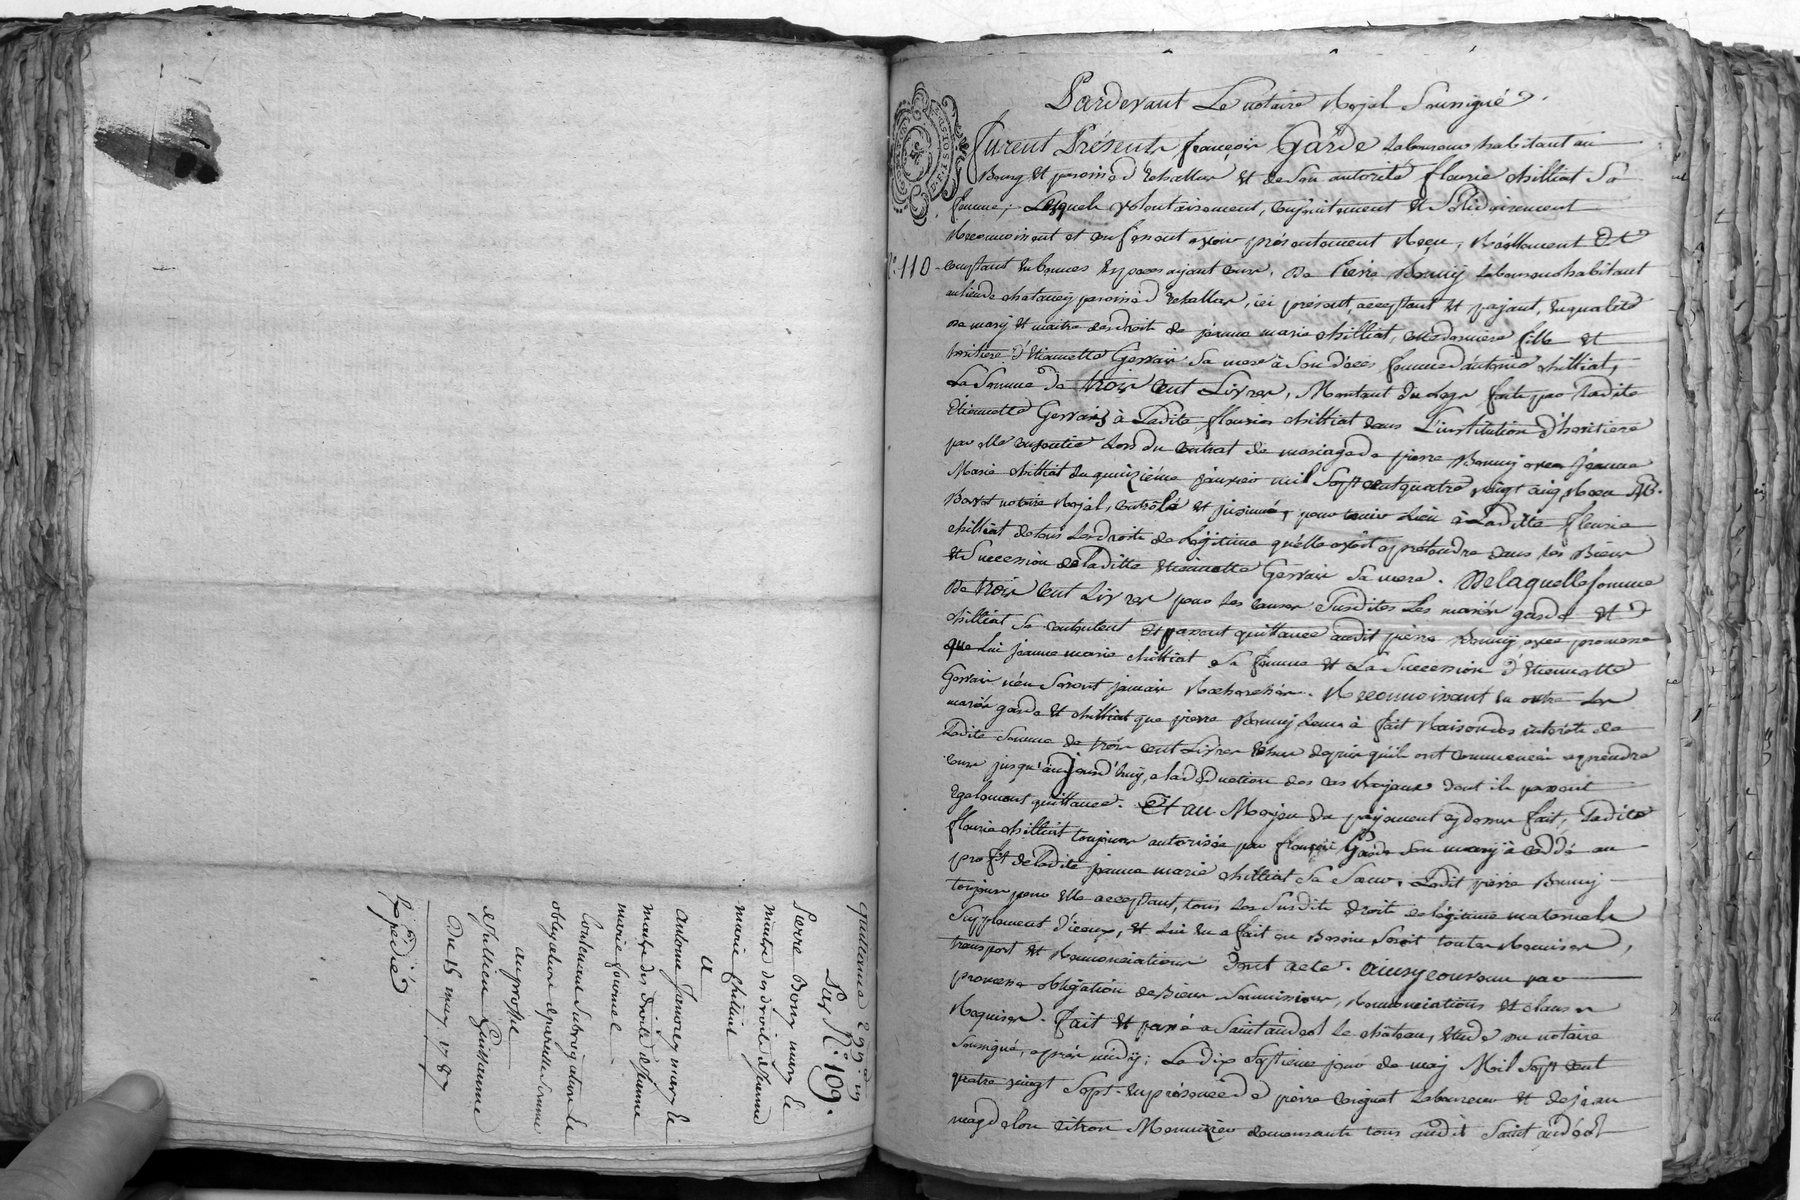 quittance 299ᵗᵗ
Par N.° 109.
Pierre Bonny mary &
maitre des droits de Jeanne
marie Chilliat
a
antoine Janvrey mary &
maitre des droits de Jeanne
marie fournel
Contenant Subrogation &
obligation de pareille Somme
au proffit
de Jullien Guillaume
Du 15 may 1787
Expédiée
Pardevant Le notaire Royal Soussigné
furent Présents françois Garde Laboureur habitant au
Bourg et paroisse d' et de Son autorité fleurie chilliat Sa
femme; Lesquels volontairement, conjointement et Solidairement
Reconnoissent et confessent avoir présentement Reçu, Réellement et
N.° 110
comptant en bonnes espèces ayant cour, de Pierre Bonnij Laboureur habitant
au lieu de paroisse d' , ici présent, acceptant et payant, en qualité
de mary et maitre des droits de jeanne marie chilliat, cette derniere fille et
heritiere d'Etiennette Gervais Sa mere à Son décès femme d'antoine chilliat,
La Somme de trois cent Livres, Montant du Legs fait par Ladite
Etiennette Gervais à Ladite fleurie chilliat dans L'institution d'heritiere
par elle consentie Lors du contrat de mariage de pierre Bonnij avec Jeanne
Marie chilliat du quinzième janvier mil Sept cent quatre vingt cinq, Reçu
notaire Royal, controlé et insinué, pour tenir Lieu à Ladite fleurie
chilliat de tous Les droits de Légitime qu'elle avoit a prétendre dans les Biens
et Succession de Ladite etiennette Gervais Sa mere. De laquelle Somme
de trois Cent Livres pour les causes Susdites Les mariés garde et
chilliat Se contentent et passent quittance audit pierre Bonnij avec promesse
que Lui jeanne marie chilliat Sa femme et La Succession d'Etiennette
Gervais n'en Seront jamais Recherchés. Reconnoissant en outre Les
mariés garde et chilliat que pierre Bonnij Leur à fait Raison des intérêts de
Ladite Somme de trois cent Livres depuis qu'ils ont commencé a prendre
cour jusqu'aujourd'huy, a la déduction des cas Royaux dont ils passent
également quittance. Et au Moyen du payement cy dessus fait, Ladite
fleurie chilliat toujours autorisée par françois Garde Son mary à cédé au
profit de Ladite jeanne marie chilliat Sa Soeur, Ledit pierre Bonnij
toujours pour elle acceptant, tous Les Susdits droits de légitime maternels
Supplement d'iceux, et Lui en a fait au Besoin Soit toutes Remises,
transport et Renonciations Dont acte. ainsy convenu par
promesse obligation de Biens Soumissions, Renonciations et clauses
Requises. fait et passé a Saint andeol Le chateau, etude du notaire
Soussigné, après midy; Le dix Septieme jour de may Mil Sept cent
quatre vingt Sept. en présence de pierre Laboureur et de jean
magdelon Menuisier demeurants tous audit Saint andéol